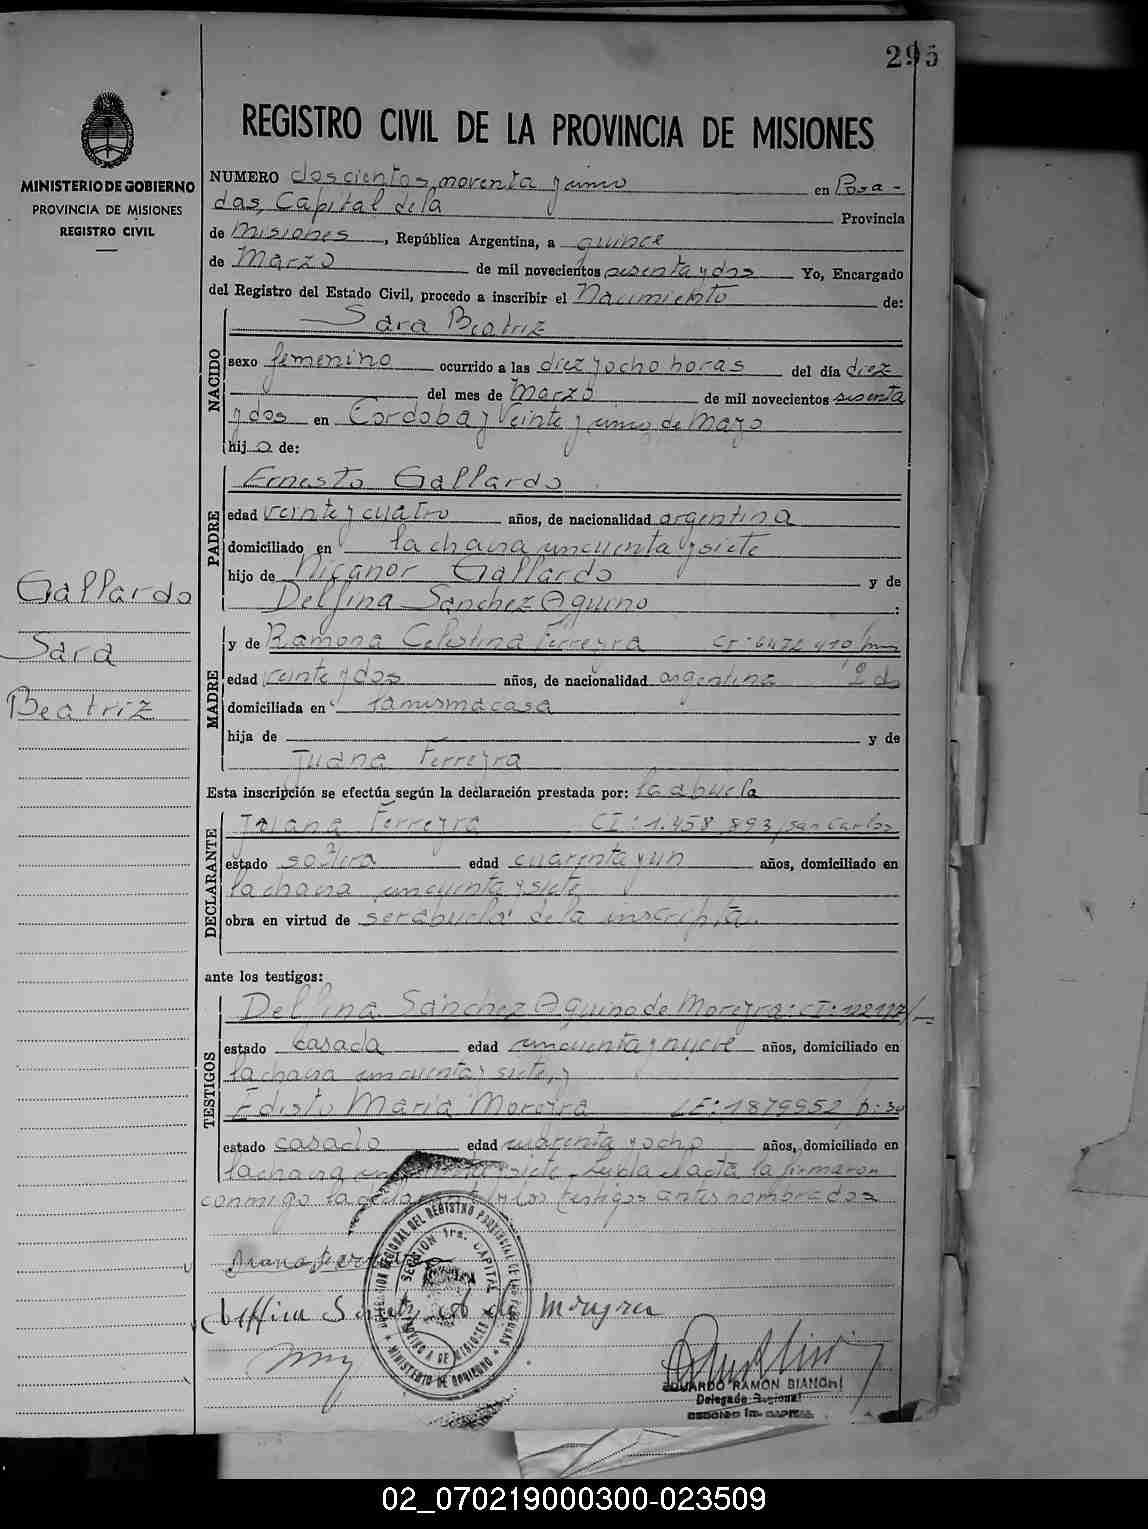 295
REGISTRO CIVIL DE LA PROVINCIA DE MISIONES
MINISTERIO DE GOBIERNO
PROVINCIA DE MISIONES
REGISTRO CIVIL
NUMERO doscientos noventa y uno en Posa-
das, Capital de la Provincia
de Misiones, República Argentina, a quince
de Marzo de mil novecientos sesenta y dos Yo, Encargado
del Registro del Estado Civil, procedo a inscribir el Nacimiento de:
Sara Beatriz
NACIDO
sexo femenino ocurrido a las diez y ocho horas del día diez
del mes de Marzo de mil novecientos sesenta
y dos en Cordoba y Veinte y uno de Mayo
hij a de:
Ernesto Gallardo
PADRE
edad veinte y cuatro años, de nacionalidad argentina
domiciliado en la chacra cincuenta y siete
hijo de Nicanor Gallardo y de
Delfina Sanchez Aquino :
Gallardo
Sara
Beatriz
MADRE
y de Ramona Celestina Ferreyra CI: 6472410/
edad veinte y dos años, de nacionalidad argentina
domiciliada en la misma casa
hija de y de
Juana Ferreyra
Esta inscripción se efectúa según la declaración prestada por: la abuela
DECLARANTE
Juana Ferreyra CI: 1.458.893/San Carlos
estado soltera edad cuarenta y un años, domiciliado en
la chacra cincuenta y siete
obra en virtud de ser abuela de la inscripta.
ante los testigos:
TESTIGOS
Delfina Sánchez Aquino de Moreyra: CI:
estado casada edad cincuenta y nueve años, domiciliado en
la chacra cincuenta y siete, y
Edisto Maria Moreyra LE: 1879952
estado casado edad cuarenta y ocho años, domiciliado en
la chacra cincuenta y siete. Leida el acta la firmaron
conmigo la declarante y los testigos antes nombrados
Juana Ferreyra
Delffina de Moreyra
DELEGACION REGIONAL DEL REGISTRO PROVINCIAL DE LAS PERSONAS
SECCION 1ra. CAPITAL
PROVINCIA DE MISIONES
MINISTERIO DE GOBIERNO
EDUARDO RAMON BIANCHI
Delegado Regional
SECCION 1ra. CAPITAL
02_070219000300-023509